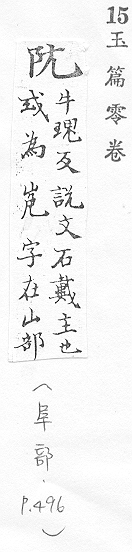 15 玉篇零卷
阢
牛瑰反説文石戴主也
或為峞字在山部
(阜部. P.496)